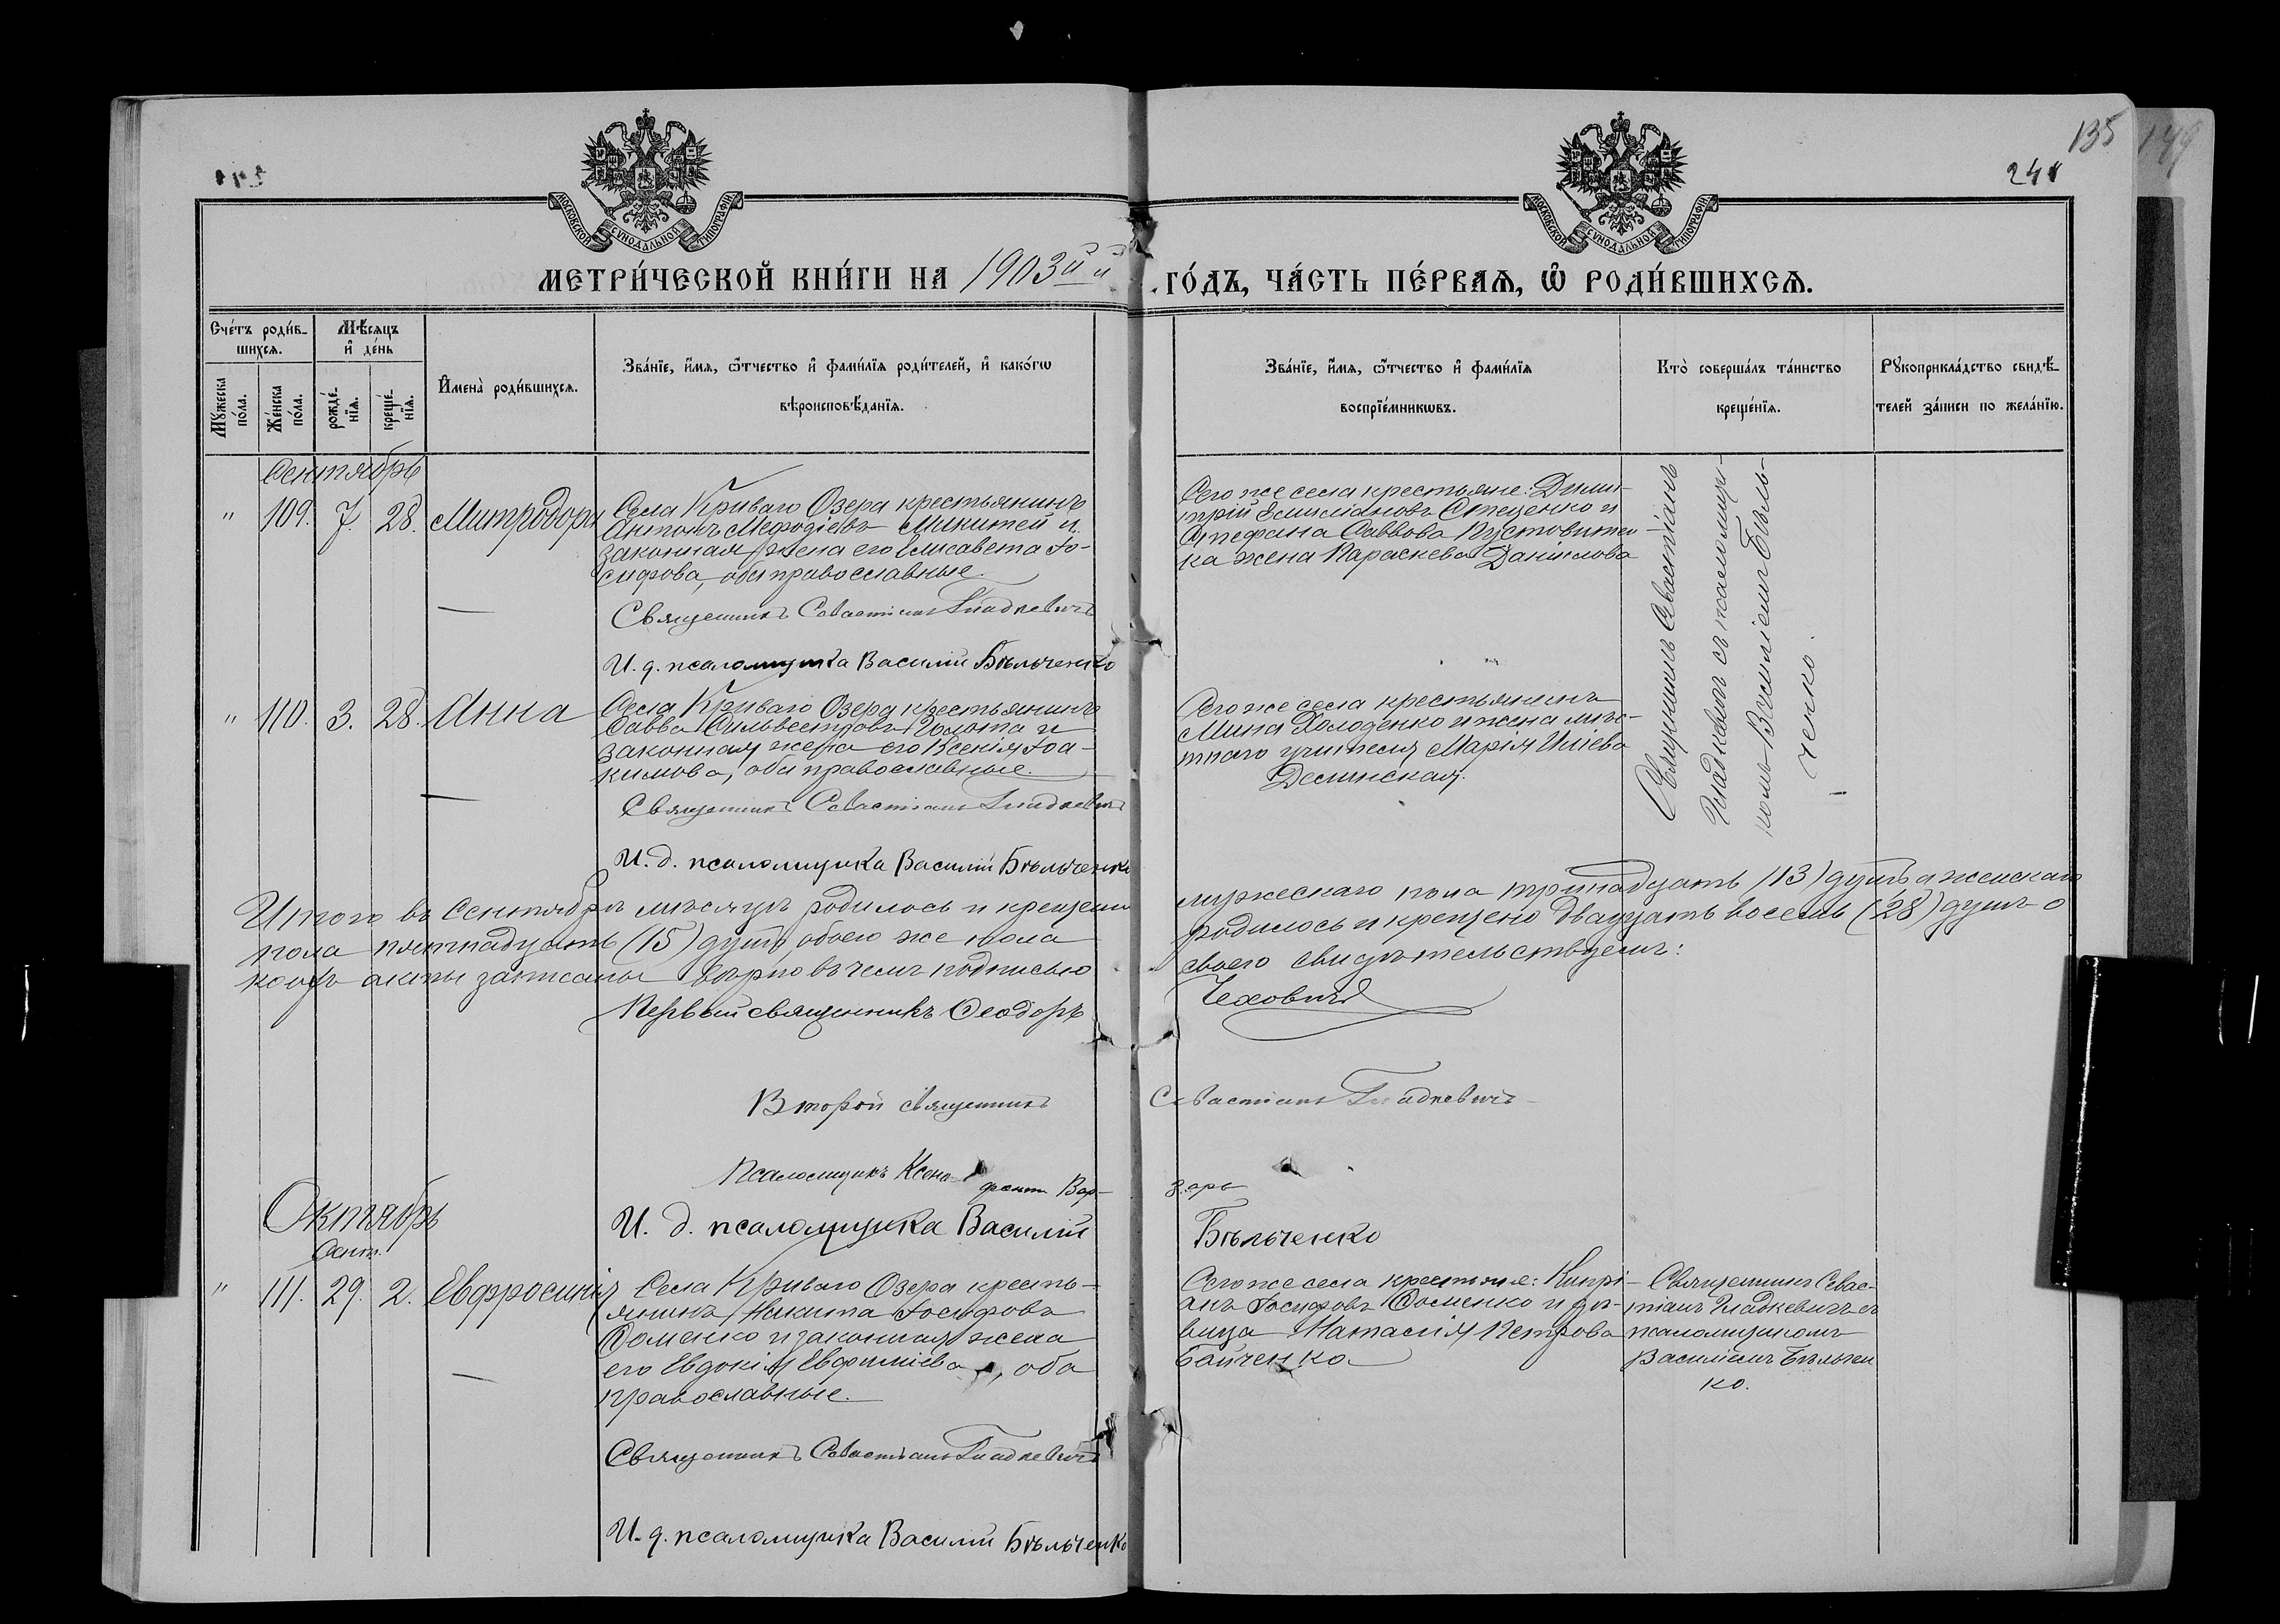 135
149
241
МОСКОВСКОЙ СѴНОДАЛЬНОЙ ТИПОГРАФІИ
МОСКОВСКОЙ СѴНОДАЛЬНОЙ ТИПОГРАФІИ
МЕТРИ́ЧЕСКОЙ КНИ́ГИ НА 1903й й ГО́ДЪ, ЧА́СТЬ ПЕ́РВАѦ, Ѡ҆ РОДИ́ВШИХСѦ.
Сче́тъ роди́в-
шихсѧ.
Мꙋ́жеска
по́ла.
Же́нска
по́ла.
Мѣ́сѧцъ
и҆ де́нь
рожде́-
нїѧ.
креще́-
нїѧ.
И҆мена̀ роди́вшихсѧ.
Зва́нїе, и҆́мѧ, ѻ҆́тчество и҆ фами́лїѧ роди́телей, и҆ како́гѡ
вѣроисповѣ́данїѧ.
Зва́нїе, и҆́мѧ, ѻ҆́тчество и҆ фами́лїѧ
воспрїе́мникѡвъ.
Кто̀ соверша́лъ та́инство
креще́нїѧ.
Рꙋкоприкла́дство свидѣ́-
телей за́писи по жела́нїю.
Сентябрь
" 109. 7. 28. Митродора
Села Криваго Озера крестьянинъ
Антонъ Меѳодіевъ Микитей и
законная жена его Елисавета Іо-
сифова, оба православные.
Священникъ Севастіанъ Гладкевичъ
И. д. псаломщика Василій Бѣльченко
Сего же села крестьяне: Дими-
трій Емиліановъ Стеценко и
Стефана Саввова Пустовитен-
ка жена Параскева Даніилова
Священникъ Севастіанъ
Гладкевичъ съ псаломщи-
комъ Василіемъ Бѣль-
ченко.
" 110. 3. 28. Анна
Села Криваго Озера крестьянинъ
Савва Сильвестровъ Голота и
законная жена его Ксенія Іоа-
кимова, оба православные.
Священникъ Севастіанъ Гладкевичъ
И. д. псаломщика Василій Бѣльченко
Сего же села крестьянинъ
Мина Холоденко и жена мѣс-
тнаго учителя Марія Иліева
Деминская.
Итого въ Сентябрѣ мѣсяцѣ родилось и крещено мужескаго пола тринадцать (13) душъ а женскаго
пола пятнадцать (15) душъ, обоего же пола родилось и крещено двадцать восемь (28) душъ о
коихъ акты записаны вѣрно въ чемъ подписью своею свидѣтельствуемъ:
Первый священникъ Ѳеодоръ Чеховичъ
Второй священникъ Севастіанъ Гладкевичъ
Псаломщикъ Ксенофонтъ Вар-
зарь
И. д. псаломщика Василій Бѣльченко
Октябрь
Сент.
" 111. 29. 2. Евфросинія
Села Криваго Озера кресть-
янинъ Никита Іосифовъ
Доменко и законная жена
его Евдокія Евфиміева, оба
православные.
Священникъ Севастіанъ Гладкевичъ
И. д. псаломщика Василій Бѣльченко
Сего же села крестьяне: Кипрі-
анъ Іосифовъ Доменко и дѣ-
вица Наталія Петрова
Байченко
Священникъ Севас-
тіанъ Гладкевичъ съ
псаломщикомъ
Василіемъ Бѣльчен
ко.